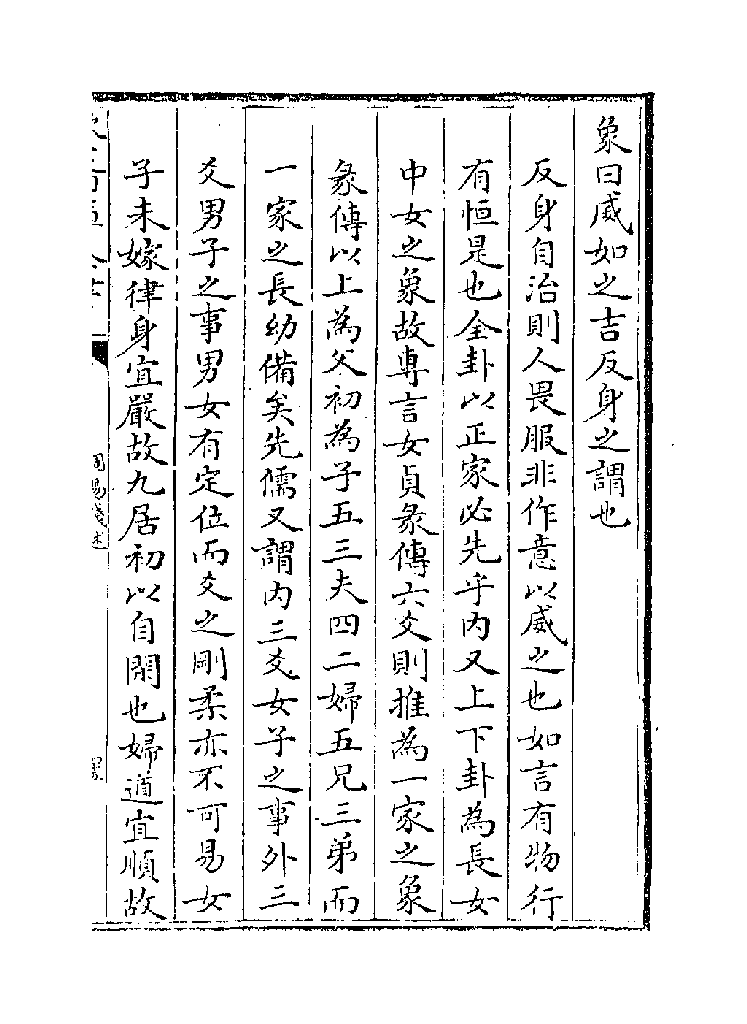 象曰威如之吉反身之謂也
反身自治則人畏服非作意以威之也如言有物行
有恒是也全卦以正家必先乎内又上下卦為長女
中女之象故專言女貞彖傳六爻則推為一家之象
彖傳以上為父初為子五三夫四二婦五兄三弟而
一家之長幼備矣先儒又謂内三爻女子之事外三
爻男子之事男女有定位而爻之剛柔亦不可易女
子未嫁律身宜嚴故九居初以自閑也婦道宜順故
周易淺述